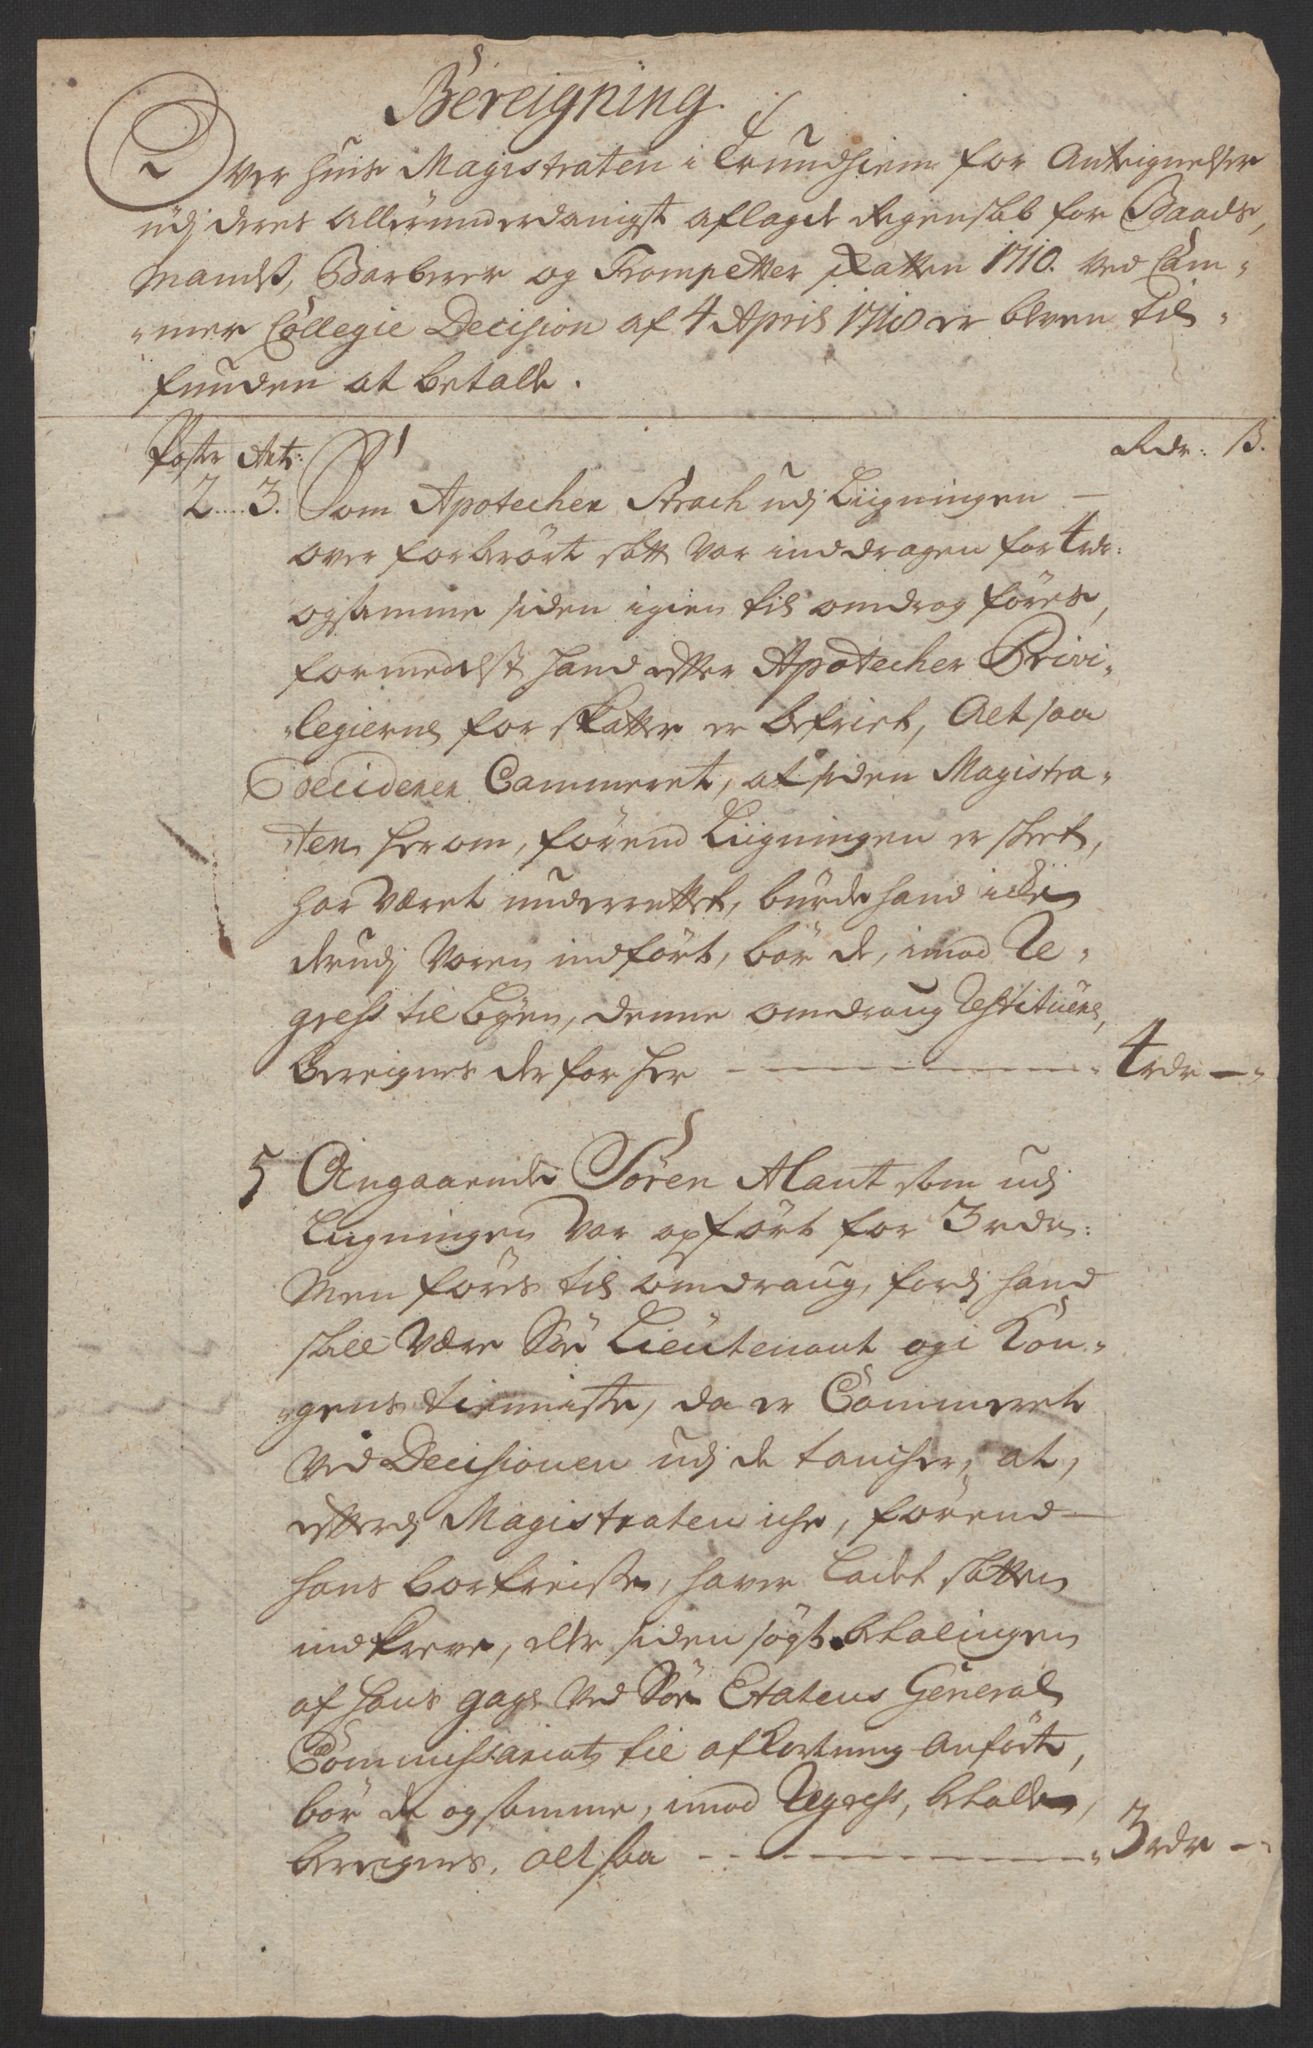 Bereigning.
Over huis Magistraten i Trundhiem for Anteignelser
udj deres Allerunderdanigst aflagde Regenskab for Baads,
mands, Barberer og Trompetter skatten 1710. ved Cam-
-mer Collegie Decision af 4 April 1718 er bleven til-
funden at betalle.
Poster Art: Rdr: ß.
2....3. Som Apotecher Strach udj Liigningen
over forberørt skatt var inddragen for 4 rdr:
og samme siden igien til omdrag føres,
formedelst hand efter Apotecher Privi-
-legierne for skatter er befriet, Alt saa
Deciderer Cammeret, at siden Magistra-
-ten herom, førend Liigningen er skeet,
har været underrettet, burde hand icke
derudj voren indført, bør de, imod Re-
gress til Byen, denne omdraug Restituere,
Bereignes derfor her - - - 4 rdr -
5 Angaaende Søren Alant som udj
Liigningen var opført for 3 rdr:
Men føres til omdraug, fordj hand
skall være Søe Lieutenant og i Kon-
-gens tienniste, da er Cammeret
ved Decisionen udj de tancher, at,
efterdj Magistraten iche, førend
hans bortreise, haver ladet skatten
indkreve, eller siden søgt betalingen
af hans gage ved Søe Etatens General
Commissariat til afkortning anført,
bør de og samme, imod Regress, betalle,
bereignes, alt saa - - - 3 rdr -